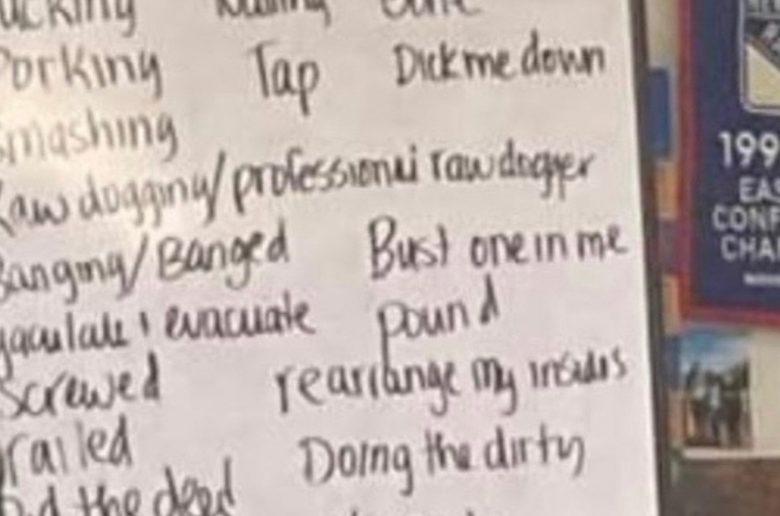 Porking Tap Dick me down
Smashing
Raw dogging/professional raw dogger
Banging/Banged Bust one in me
evacuate pound
Screwed rearrange my insides
railed Doing the dirty
the deed
199
EA
CON
CHA